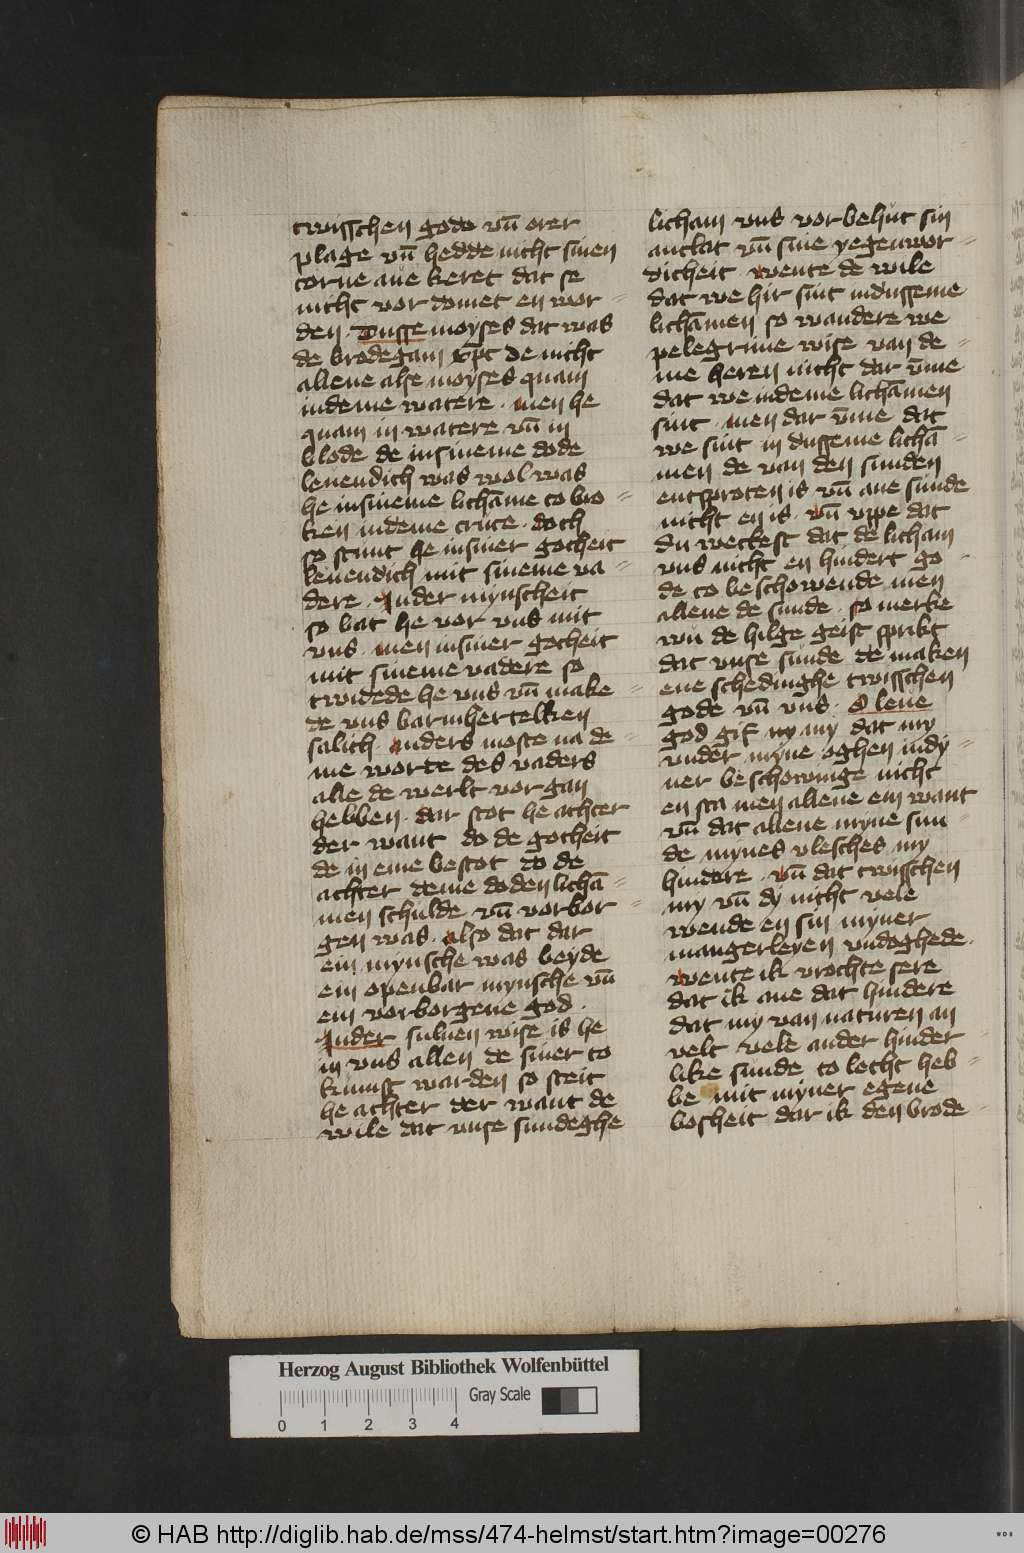 twisschen gode vn̄ orer
plage vn̄ hedde nicht sinen
torne aue keret dat se
nicht vor domet en wor =
den. Dusse moyses dat was
de brodegam xp̄c de nicht
allene alse moyses quam
indeme watere. men he
quam in watere vn̄ in
blode de insineme dode
leuendich was wol was
he insineme lichāme to bro =
ken indeme cruce. doch
so stunt he insiner gotheit
leuendich mit sineme va =
dere. Inder mynscheit
so bat he vor vns mit
vns. men insiner gotheit
mit sineme vadere so
twidede he vns vn̄ make =
de vns barmhertelken
salich. anders moste na de =
me worde des vaders
alle de werlt vorgan
hebben. dar stot he achter
der want do de gotheit
de in eme bestot do de
achter deme doden lichā =
men schulde vn̄ vorbor =
gen was. also dat dar
ein mynsche was beyde
ein openbar mynsche vn̄
ein vorborgene god.
Inder suluen wise is he
in vns allen de siner to
kumst warden so steit
he achter der want de
wile dat vnse sundeghe
licham vns vorbehut sin
antlat vn̄ sine yegenwor =
dicheit wente de wile
dat we hir sint indusseme
lichāmen so wandere we
pelegrime wise van de =
me heren nicht dar v̄me
dat we indeme lichāmen
sint. men dar v̄me dat
we sint in dusseme lichā =
men de van den sunden
entsproten is vn̄ ane sunde
nicht en is. vn̄ vppe dat
du weckest dat de licham
vns nicht en hindert go
de to beschowende men
allene de sunde. so merke
wu de hilge geist sprikt
dat vnse sunde de maken
ene schedinghe twisschen
gode vn̄ vns. O leue
god gif my my dat my
vnder myne oghen indy =
ner beschowinge nicht
en sta men allene ein want
vn̄ dat allene myne sun =
de mynes vlesches my
hindere. vn̄ dat twisschen
my vn̄ dy nicht vele
wende en sin myner
mangerleyen vndoghede.
wente ik vrochte sere
dat ik ane dat hindere
dat my van naturen an
velt vele ander hinder =
like sunde to lecht heb =
be mit myner egene
bosheit dar ik den brode =
Herzog August Bibliothek Wolfenbüttel
Gray Scale
0 1 2 3 4
© HAB http://diglib.hab.de/mss/474-helmst/start.htm?image=00276